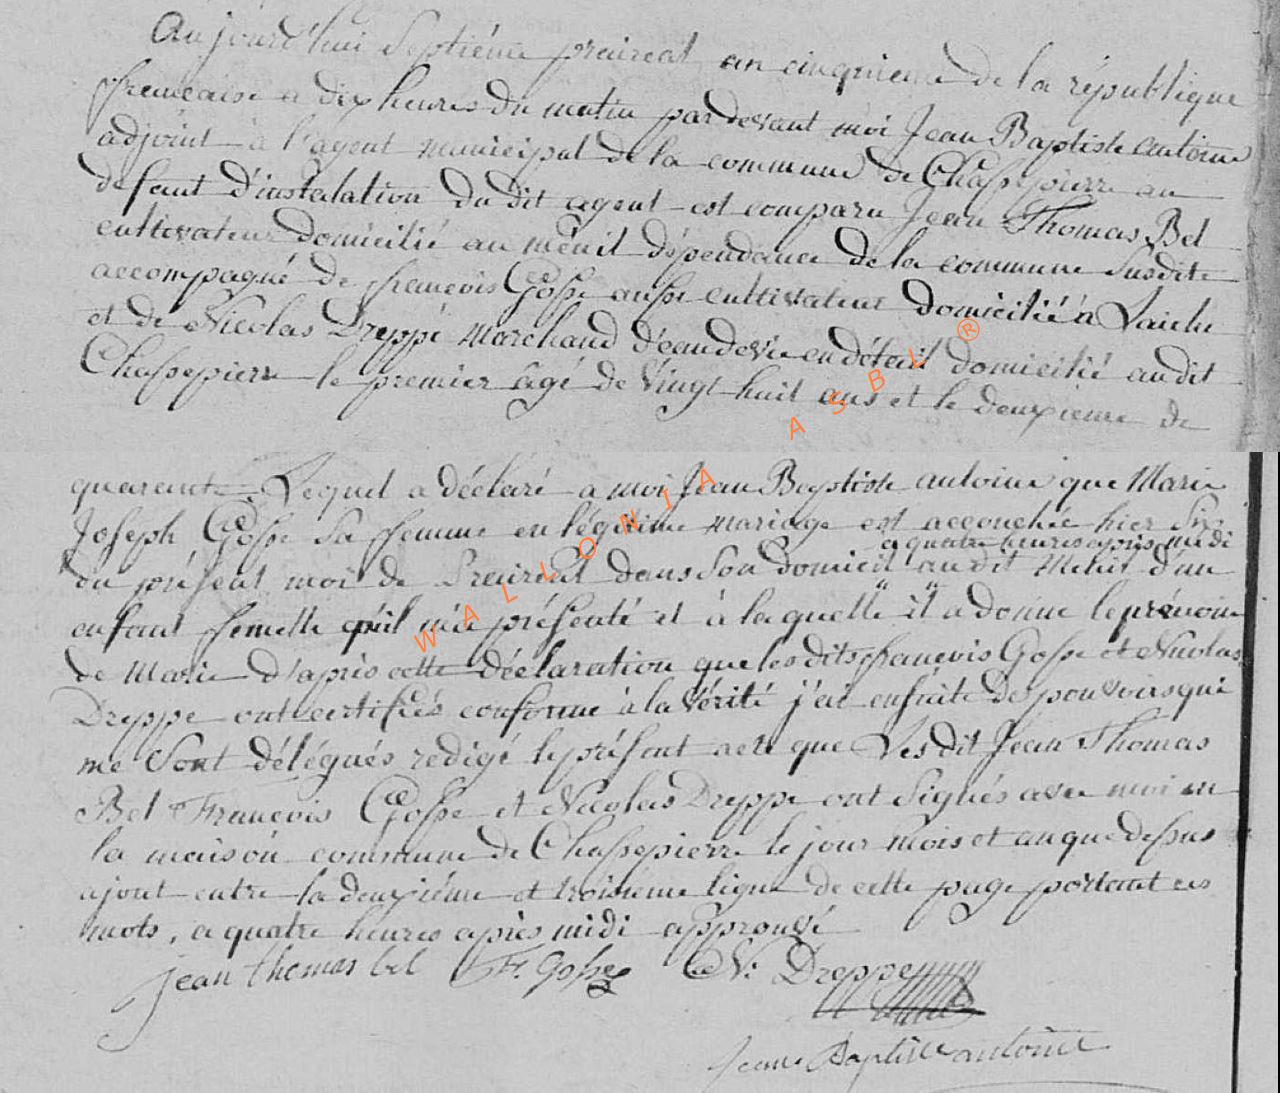 Aujourd'hui Septiéme prairéal an cinquieme de la république
francaise a dix heures du matin par devant moi Jean Baptiste antoine
adjoint à l'agent municipal de la commune de Chassepierre au
défaut d'instalation du dit agent est comparu Jean Thomas Bel
cultivateur domicilié au ménil dépendance de la commune Susdite
accompagné de francois Gosse aussi cultivateur domicilié à Laiche
et de Nicolas Dreppé Marchand d'eau de vie en détail domicilié audit
Chassepierre le premier âgé de Vingt huit ans et le deuxieme de
quarente. Lequel a déclaré a moi Jean Baptiste antoine que Marie
Joseph Gosse Sa femme en légitime mariage est accouchée hier Six
a quatre heures après midi
du présent moi de Preiréal dans Son domicil audit Ménil d'un
enfant femelle qu'il m'a présenté et à laquelle il a donné le prénom
de Marie d'après cette déclaration que les dits francois Gosse et Nicolas
Dreppe ont certifiés conforme à la Vérité j'ai ensuite des pouvoirs qui
me Sont délégués redigé le présent acte que Les dit Jean Thomas
Bel Francois Gosse et Nicolas Dreppe ont Signés avec moi en
la maison commune de Chassepierre le jour Mois et an que dessus
ajout entre la deuxiéme et troisieme ligne de cette page portant ces
mots, a quatre heures après midi approuvé
jean thomas bel F. Gosse N: Dreppe
Jean Baptiste antoine
WALLONIA ASBL ®